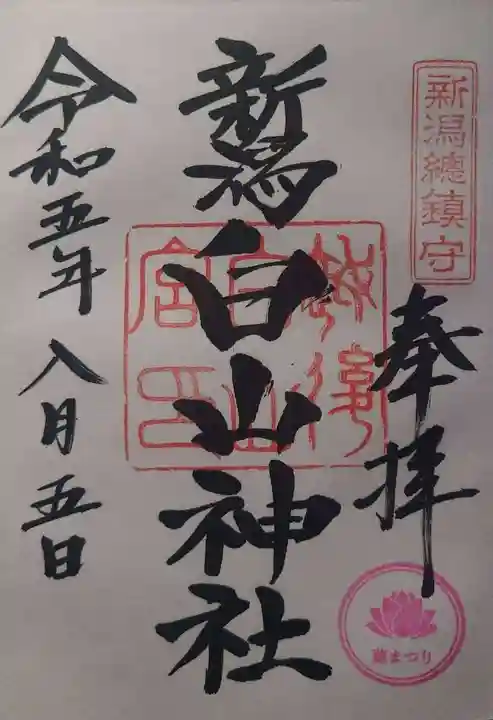 新潟總鎮守
奉拝
新潟白山神社
令和五年 八月 五日
蓮まつり